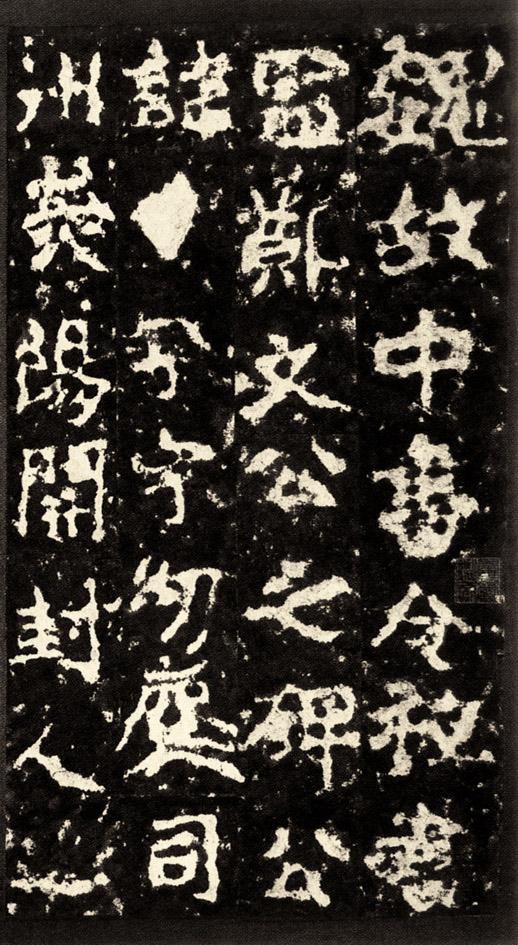 魏故中書令秘書
監鄭文公之碑公
諱字幼司
州滎陽開封人